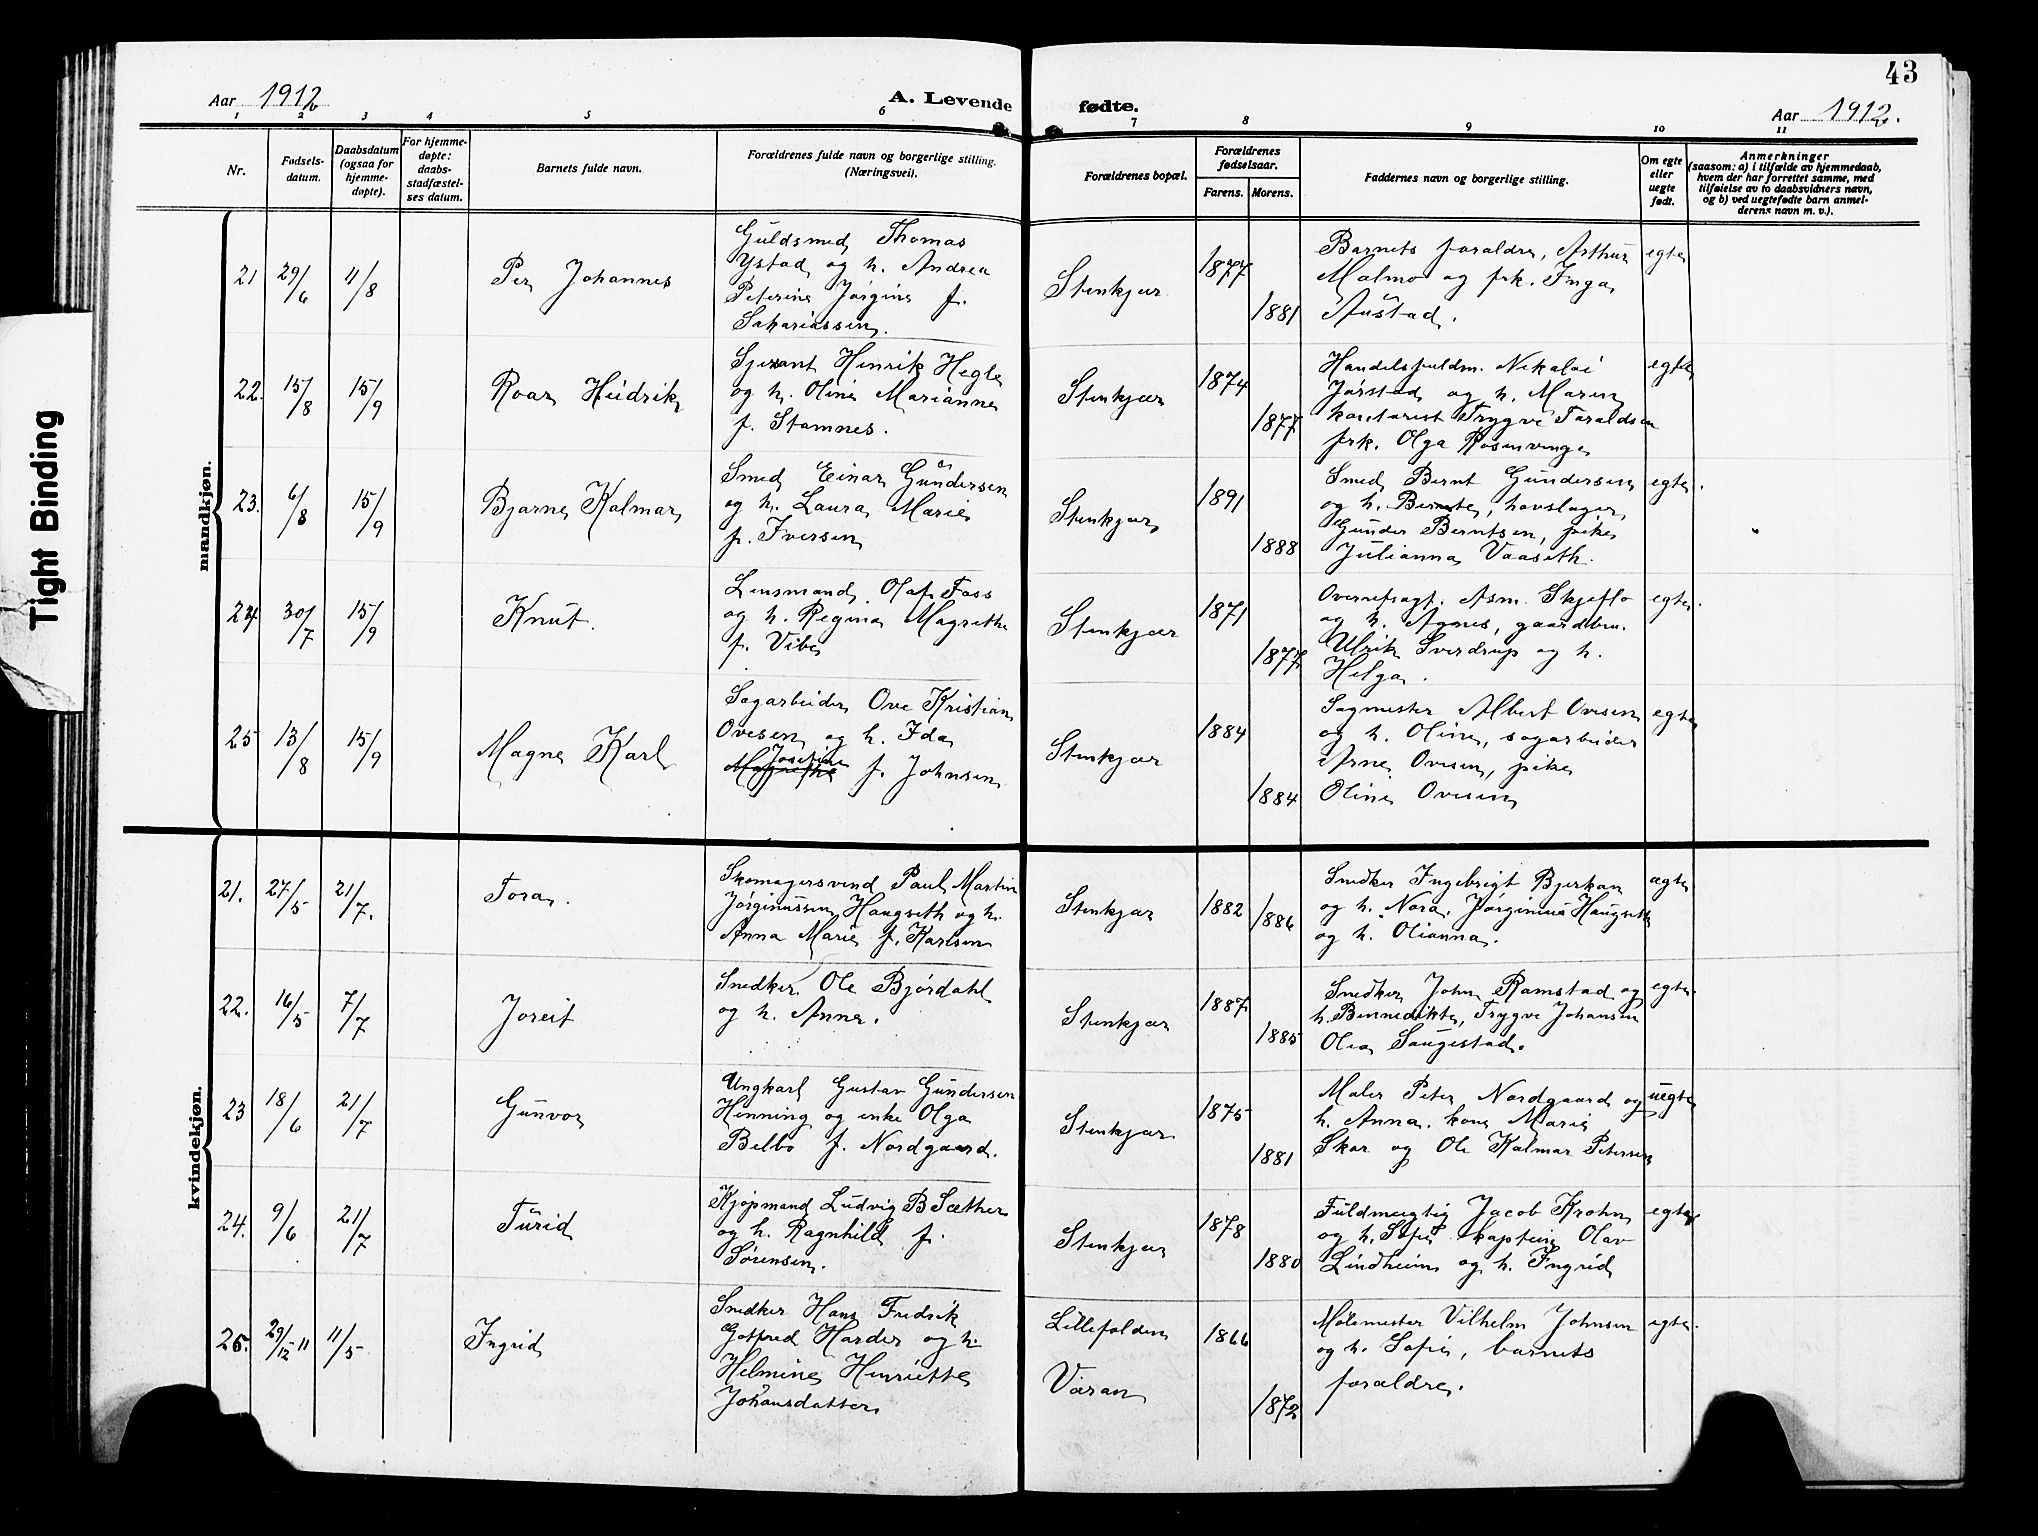 Tight Binding
43
Aar 1912
A. Levende fødte.
Aar 1912.
1 2 3 4 5 6 7 8 9 10 11
Nr.
Fødsels-
datum.
Daabsdatum
(ogsaa for
hjemme-
døpte).
For hjemme-
døpte:
daabs-
stadfæstel-
ses datum.
Barnets fulde navn.
Forældrenes fulde navn og borgerlige stilling.
(Næringsvei).
Forældrenes bopæl.
Forældrenes
fødselsaar.
Farens. Morens.
Faddernes navn og borgerlige stilling.
Om egte
eller
uegte
født.
Anmerkninger
(saasom: a) i tilfælde av hjemmedaab,
hvem der har forrettet samme, med
tilføielse av to daabsvidners navn,
og b) ved uegtefødte barn anmel-
derens navn m. v.).
mandkjøn.
21
29/6
11/8
Per Johannes
Guldsmed Thomas
Ystad og h. Andrea
Peterine Jørgine f.
Sakariassen.
Stenkjær
1877
1881
Barnets forældre, Arthur
Malmo og frk. Inga
Austad.
egte
22.
15/8
15/9
Roar Heidrik
Henrik Hegle
og h. Oline Marianne
f. Stamnes.
Stenkjær
1874
1877
Handelsfuldm. Nikolai
Jørstad og h. Maren
Trygve Taraldsen
frk. Olga Rosenvinge
egte
23.
6/8
15/9
Bjarne Kalmar
Smed Einar Gundersen
og h. Laura Marie
f. Iversen
Stenkjær
1891
1888
Smed Bernt Gundersen
og h. Bernte, hovslager
Gunder Berntsen, pike
Julianna Vaaseth.
egte.
24
30/7
15/9
Knut.
Lensmand Olaf Foss
og h. Regina Magrethe
f. Vibe
Stenkjær
1871
1877
Overretssagf. Asm. Skjeflo
og h. Agnes, gaardbru.
Ulrik Sverdrup og h.
Helga.
egte.
25
13/8
15/9
Magne Karl
Sagarbeider Ove Kristian
Ovesen og h. Ida
Josefine
Magrethe f. Johnsen
Stenkjær
1884
1884
Sagmester Albert Ovesen
og h. Oline, sagarbeider
Arne Ovesen, pike
Oline Ovesen
egte
kvindekjøn.
21.
27/5
21/7.
Tora.
Skomagersvend Paul Martin
Jørginussen Haugseth og h.
Anna Marie f. Karlsen
Stenkjær
1882
1886
Snedker Ingebrigt Bjerkan
og h. Nora. Jørginus Haugseth
og h. Olianna.
ægte
22.
16/5
7/7
Joreit
Snedker Ole Bjørdahl
og h. Anna.
Stenkjær
1887
1885
Snedker John Ramstad og
h. Bennedikte, Trygve Johansen
Olea Saugestad.
egte.
23
18/6
21/7
Gunvor
Ungkarl Gustav Gundersen
Henning og enke Olga
Belbo f. Nordgaard.
Stenkjær
1875
1881
Maler Peter Nordgaard og
h. Anna. kone Marie
Skar og Ole Kalmar Petersen
uegte
24.
9/6
21/7
Turid
Kjøpmand Ludvig B Sæther
og h. Ragnhild f.
Sørensen.
Stenkjær
1878
1880
Fuldmegtig Jacob Krohn
og h. Sofie kaptein Olav
Lindheim og h. Ingrid
egte
25.
29/12 11
11/5
Ingrid
Snedker Hans Fredrik
Gotfred Harder og h.
Helmine Henriette
Johansdatter
Lillefolden
Væran
1866
1872
Mølemester Vilhelm Johnsen
og h. Sofie, barnets
forældre.
egte.